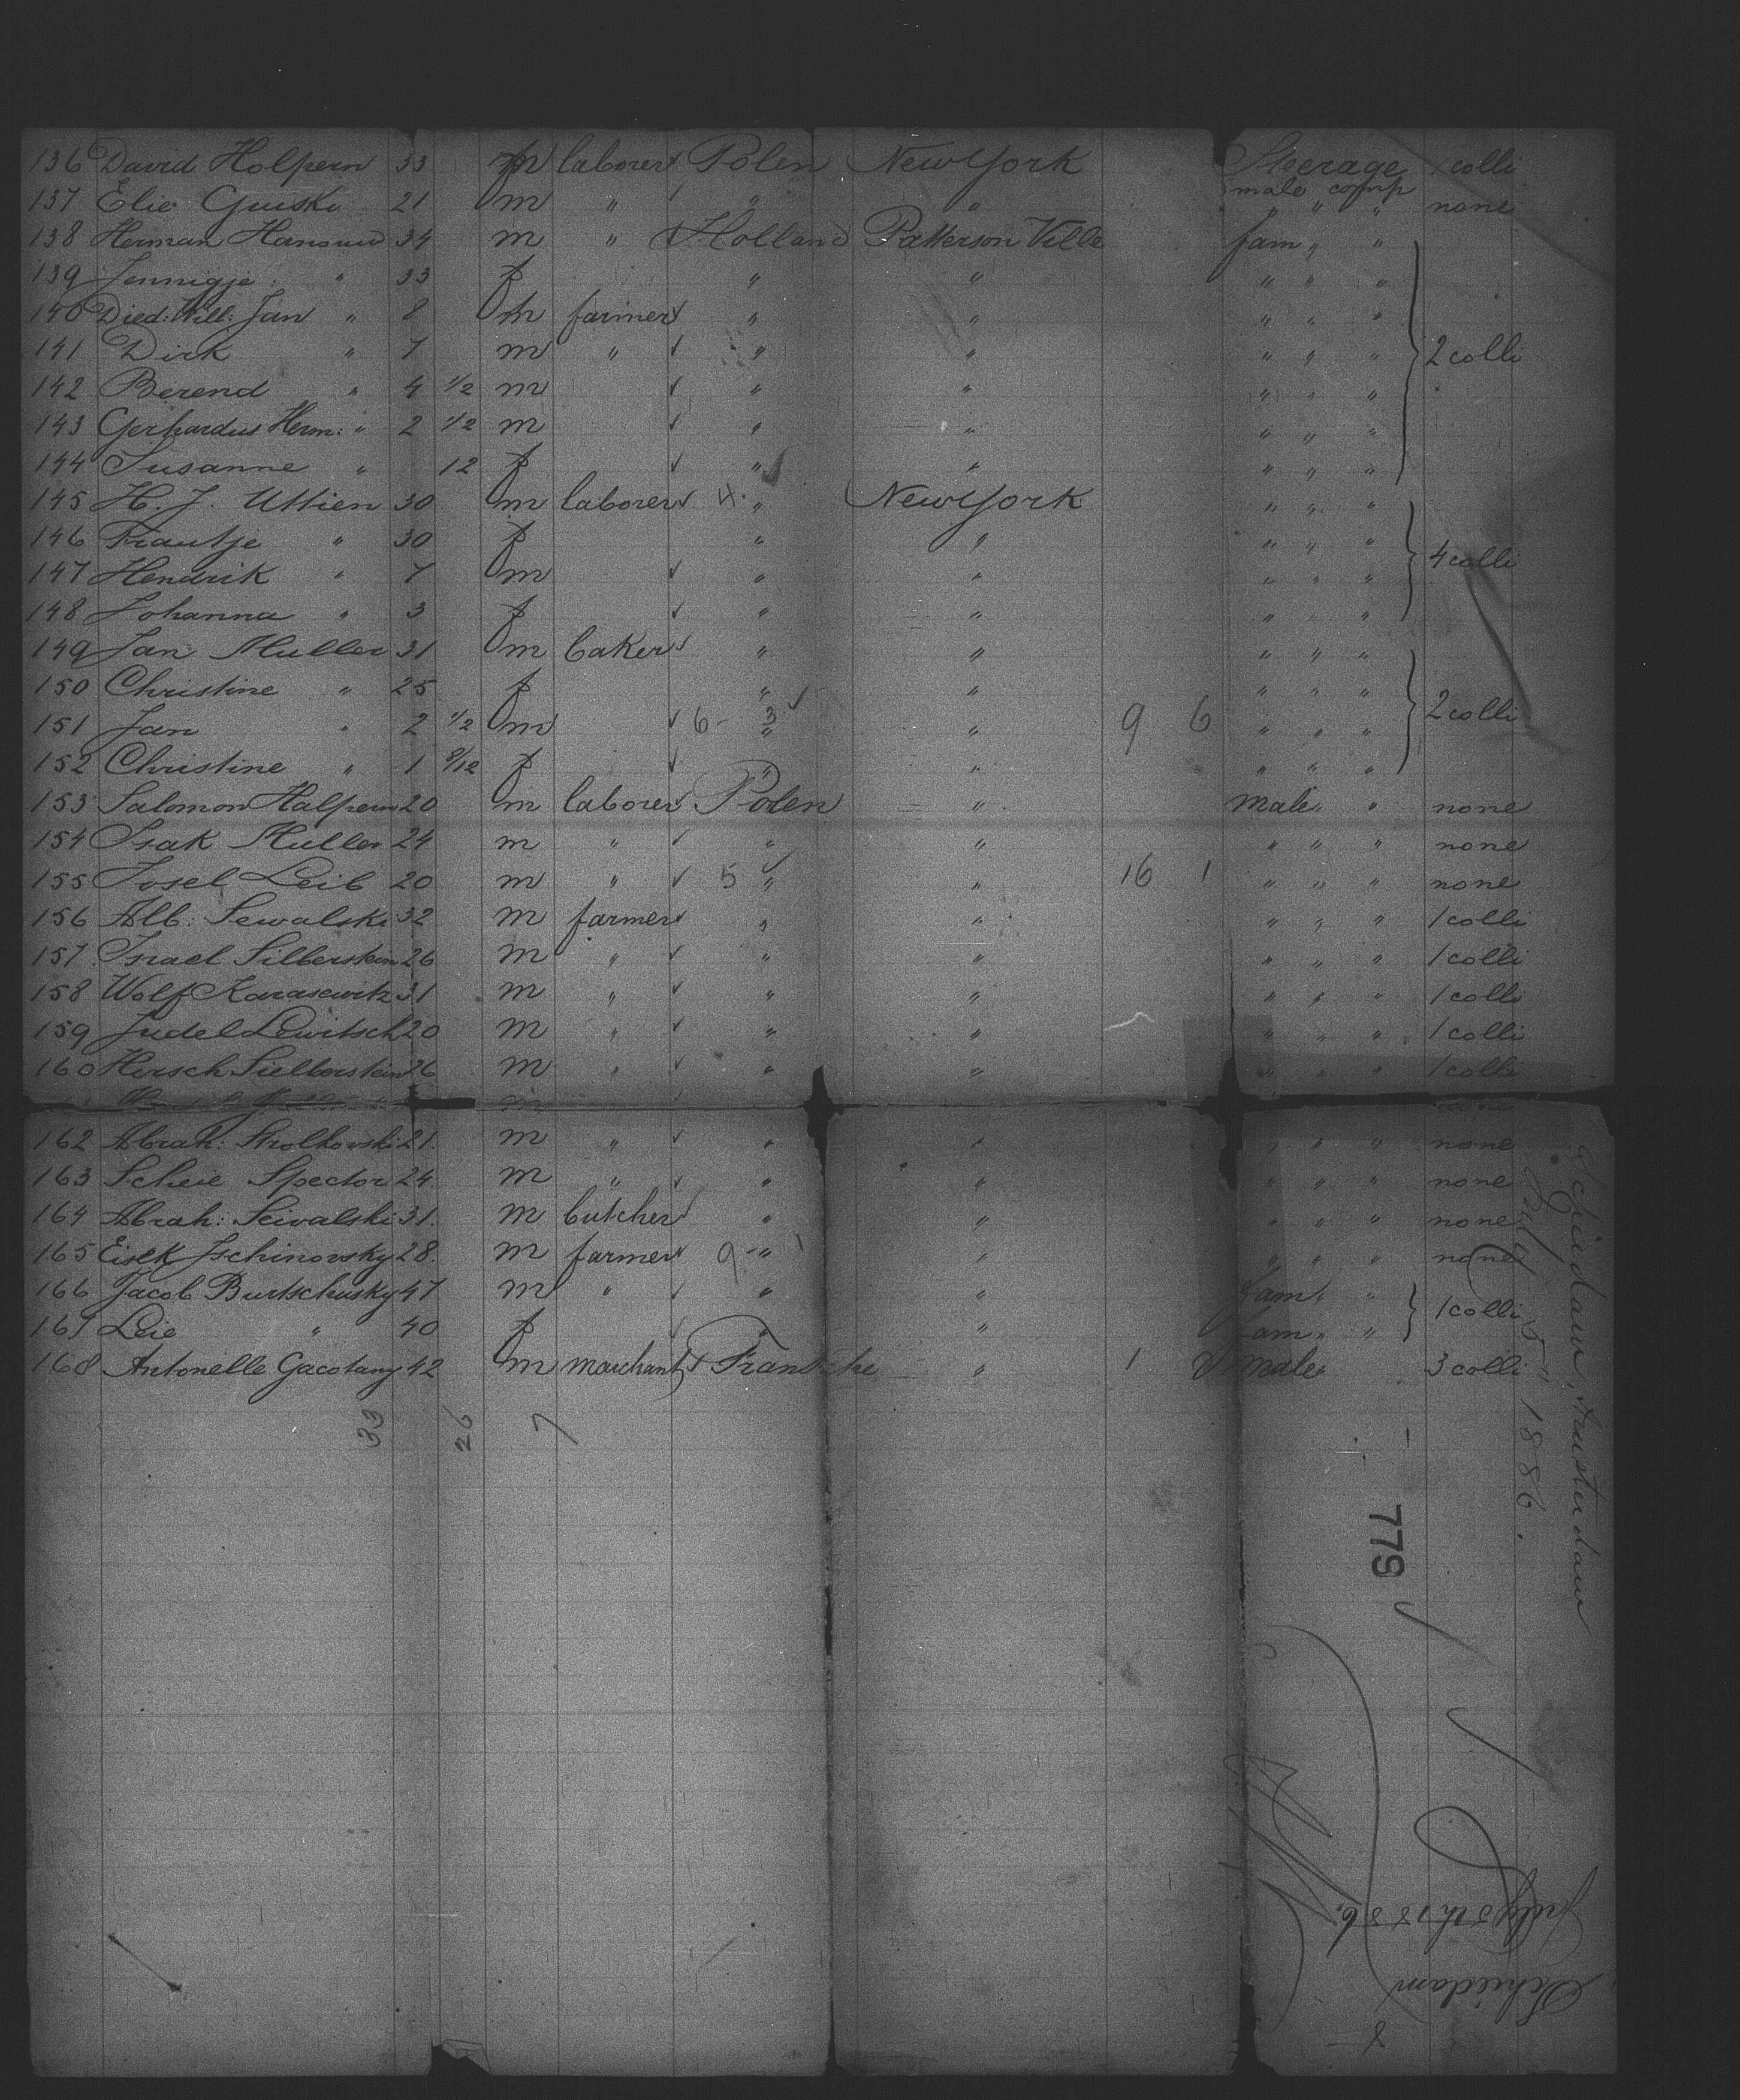 136 David Holpern 33 m laborer Polen New York Steerage 1 colli
male comp
137 Elie Guiski 21 m " " " " " " none
138 Herman 34 m " Holland Patterson Ville fam " "
139 Jennigje " 33 f " " " " "
140 Died: Will: Jan " 8 m farmer " " " " "
141 Dirk " 7 m " " " " " " 2 colli
142 Berend " 4 1/2 m " " " " "
143 Gerhardus Herm: " 2 1/2 m " " " " "
144 Susanne " 12 f " " " " "
145 H. J. Uttien 30 m laborer 4 " New York " " "
146 Frautje " 30 f " " " " "
147 Hendrik " 7 m " " " " " 4 colli
148 Johanna " 3 f " " " " "
149 Jan Muller 31 m baker " " " " "
150 Christine " 25 f " " " " "
151 Jan " 2 1/2 m 6- 3 " " 9 6 " " " 2 colli
152 Christine " 1 9/12 f " " " " "
153 Salomon Halpern 20 m laborer Polen " male " " none
154 Isak Muller 24 m " " " " " " none
155 Josel Leib 20 m " 5 " " 16 1 " " " none
156 Alb: Sewalski 32 m farmer " " " " " 1 colli
157 Israel Silberstein 26 m " " " " " " 1 colli
158 Wolf Karasewitz 31 m " " " " " " 1 colli
159 Judel Lewitsch 20 m " " " " " " 1 colli
160 Hersch Sielberstein 26 m " " " " " " 1 colli
m none
162 Abrah: 21 m " " " " " " none
163 Scheie Spector 24 m " " " " " " none
164 Abrah: Seiwalski 31 m butcher " " " " " none
165 Eisek Jschinovsky 28 m farmer 9 " " " " " none
166 Jacob Burtschusky 47 m " " " fam " " 1 colli
167 Leie " 40 f " " fam " "
168 Antonelle Gacotany 42 m marchant " 1 male " 3 colli
33 26 7
Schiedam, Amsterdam
July 5" 1886.
779
Schiedam
July 5th 1886.